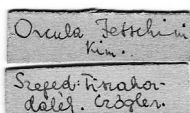 Oscula Fetschini
Kim..
Szeged: Tiszahor-
dalék. Czógler.